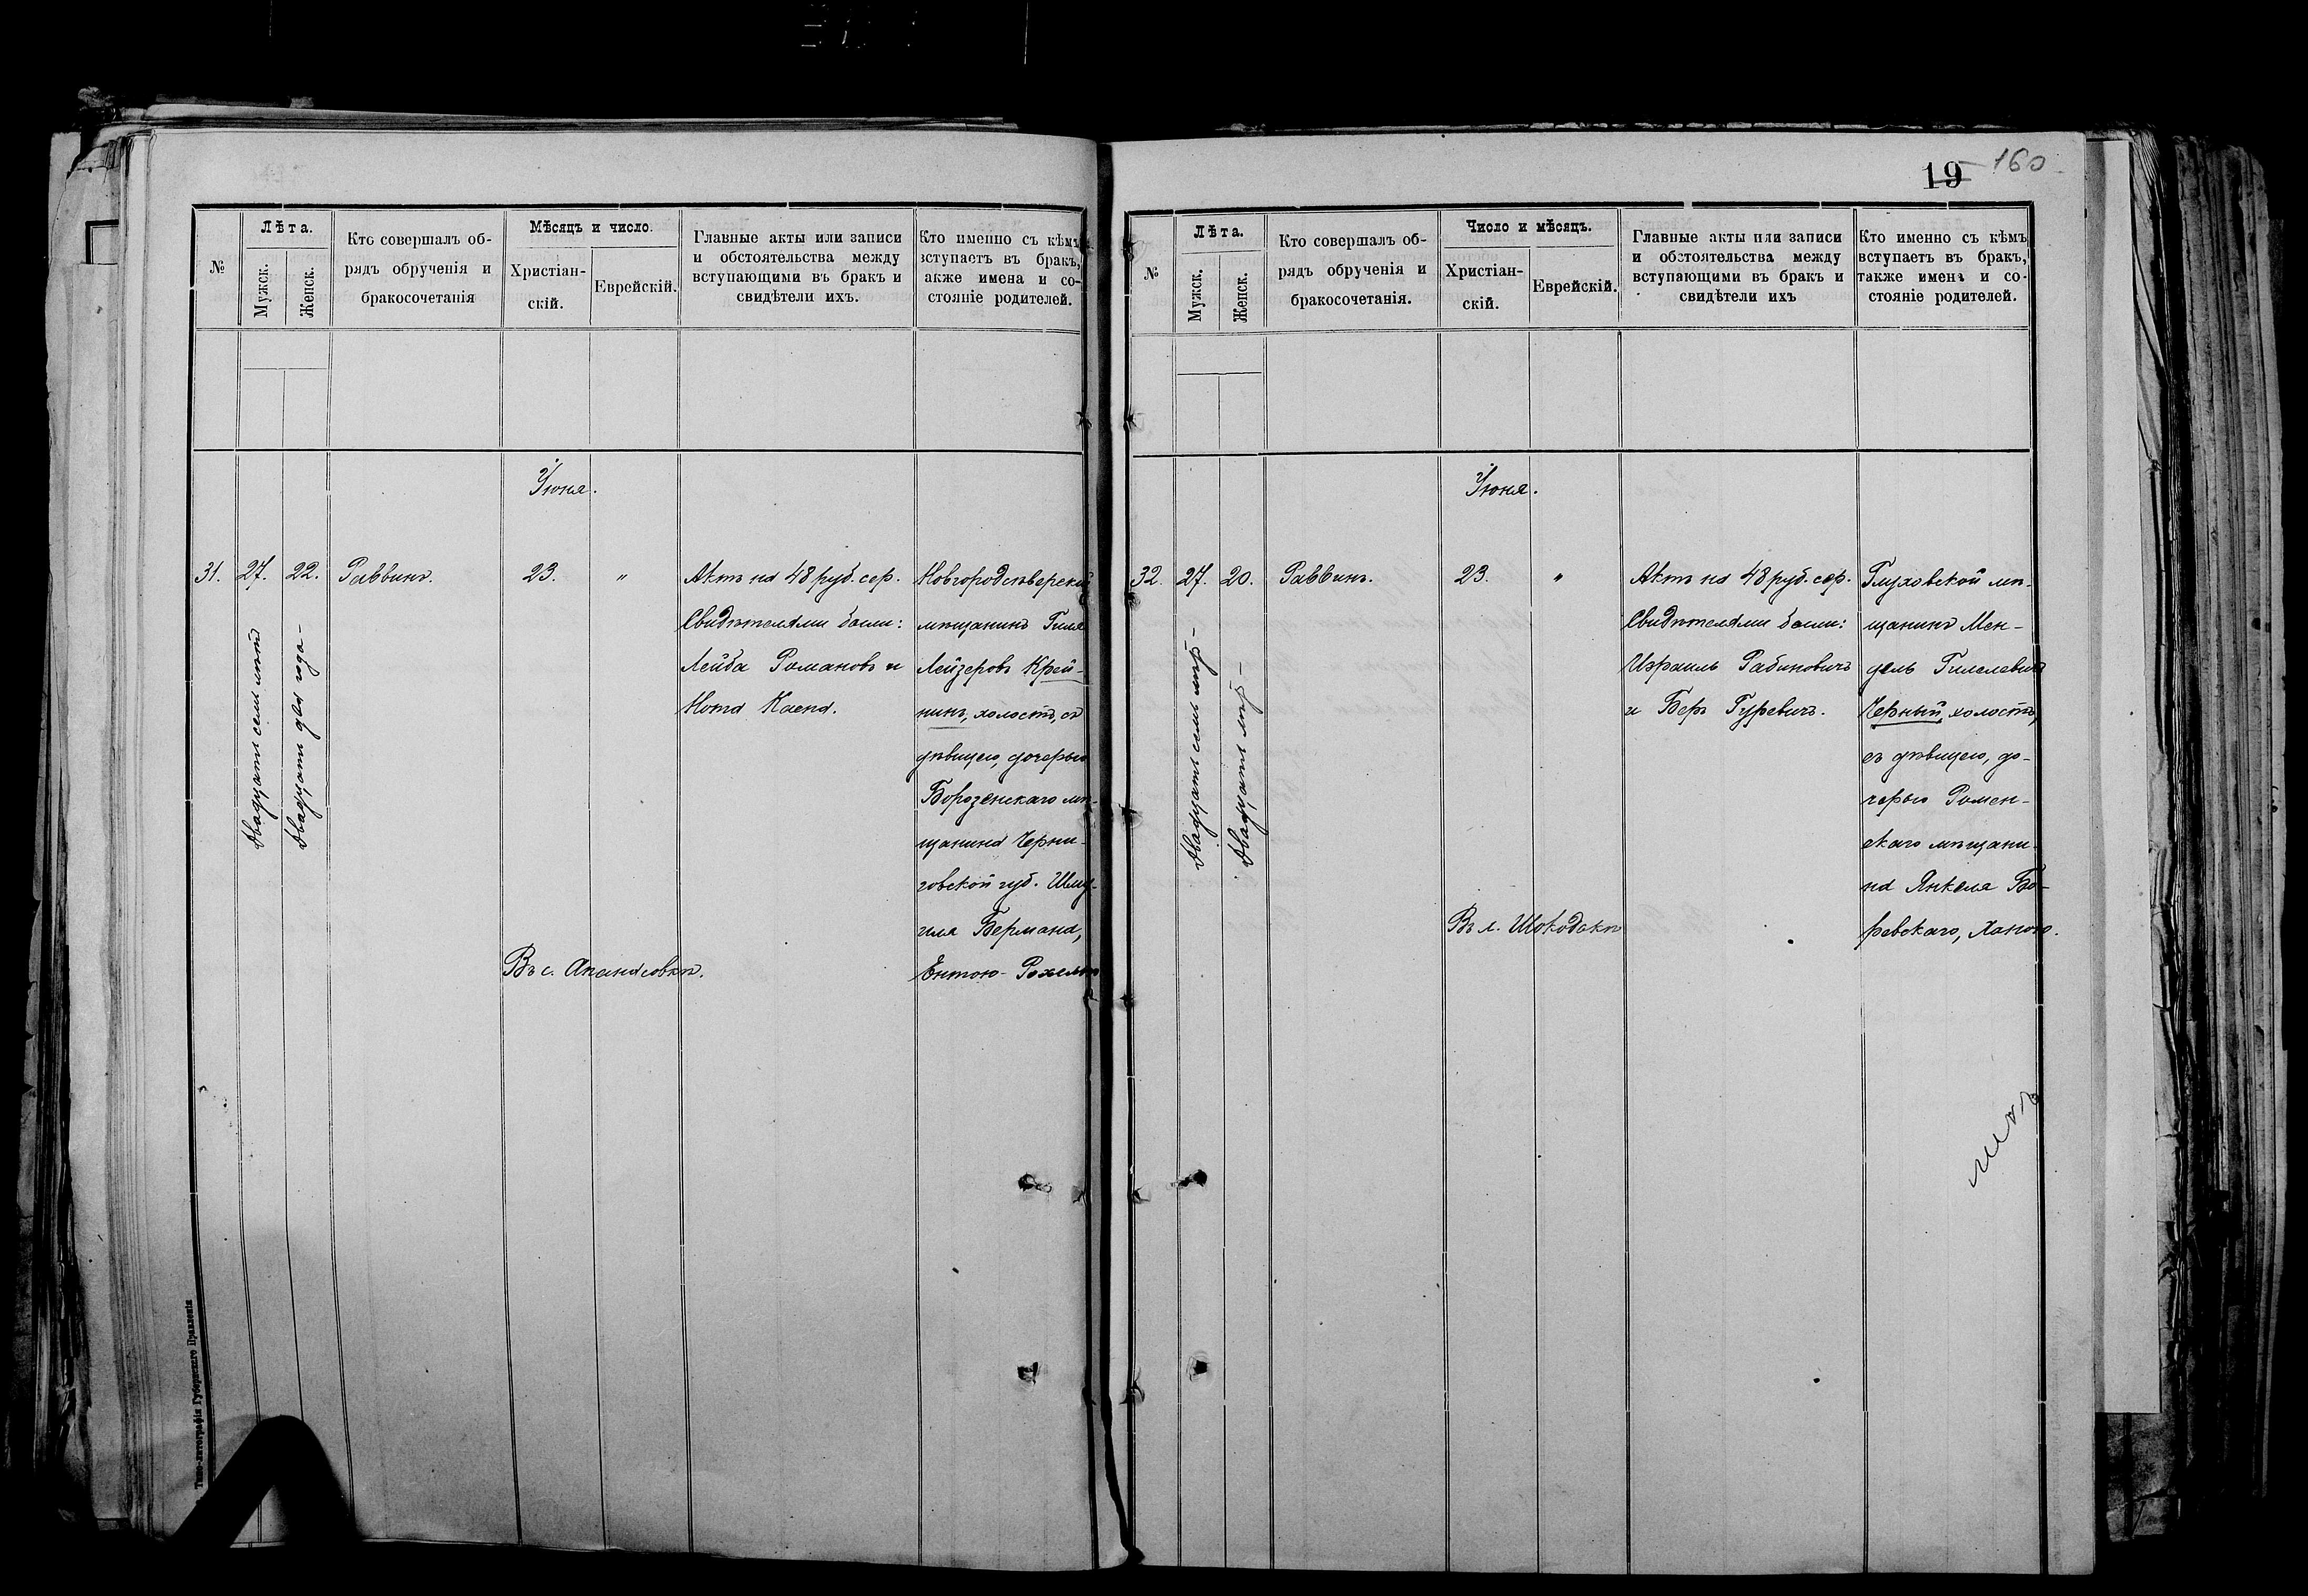 №
Лѣта.
Мужск.
Женск.
Кто совершалъ об-
рядъ обрученія и
бракосочетанія
Мѣсяцъ и число.
Христіан-
скій.
Еврейскій.
Главные акты или записи
и обстоятельства между
вступающими въ бракъ и
свидѣтели ихъ.
Кто именно съ кѣмъ
вступаетъ въ бракъ,
акже имена и со-
стояніе родителей.
Іюня.
31.
27.
22.
Раввинъ.
23.
"
Двадцать семь лѣтъ
Двадцать два года —
Актъ на 48 руб. сер.
Свидѣтелями были:
Лейба Романовъ и
Нота Каена.
Новгородсѣверскій
мѣщанинъ Гиля
Лейзеровъ Крей-
нинъ, холостъ, съ
дѣвицею, дочерью
Борзенскаго мѣ-
щанина Черни-
говской губ. Шму-
ила Бермана,
Ентою-Рохелью
Въ с. Апанасовкѣ.
Типо-литографія Губернскаго Правленія
19 160
№
Лѣта.
Мужск.
Женск.
Кто совершалъ об-
рядъ обрученія и
бракосочетанія.
Число и мѣсяцъ.
Христіан-
скій.
Еврейскій.
Главные акты или записи
и обстоятельства между
вступающими въ бракъ и
свидѣтели ихъ
Кто именно съ кѣмъ
вступаетъ въ бракъ,
также имена и со-
стояніе родителей.
Іюня.
32.
27.
20.
Раввинъ.
23.
"
Двадцать семь лѣтъ —
Двадцать лѣтъ —
Актъ на 48 руб. сер.
Свидѣтелями были:
Израиль Рабиновичъ
и Беръ Гуревичъ.
Глуховской мѣ-
щанинъ Мен-
дель Гилелевичъ
Черный, холостъ,
съ дѣвицею, до-
черью Ромен-
скаго мѣщани-
на Янкеля Бо-
ревскаго, Ханою.
Въ м.